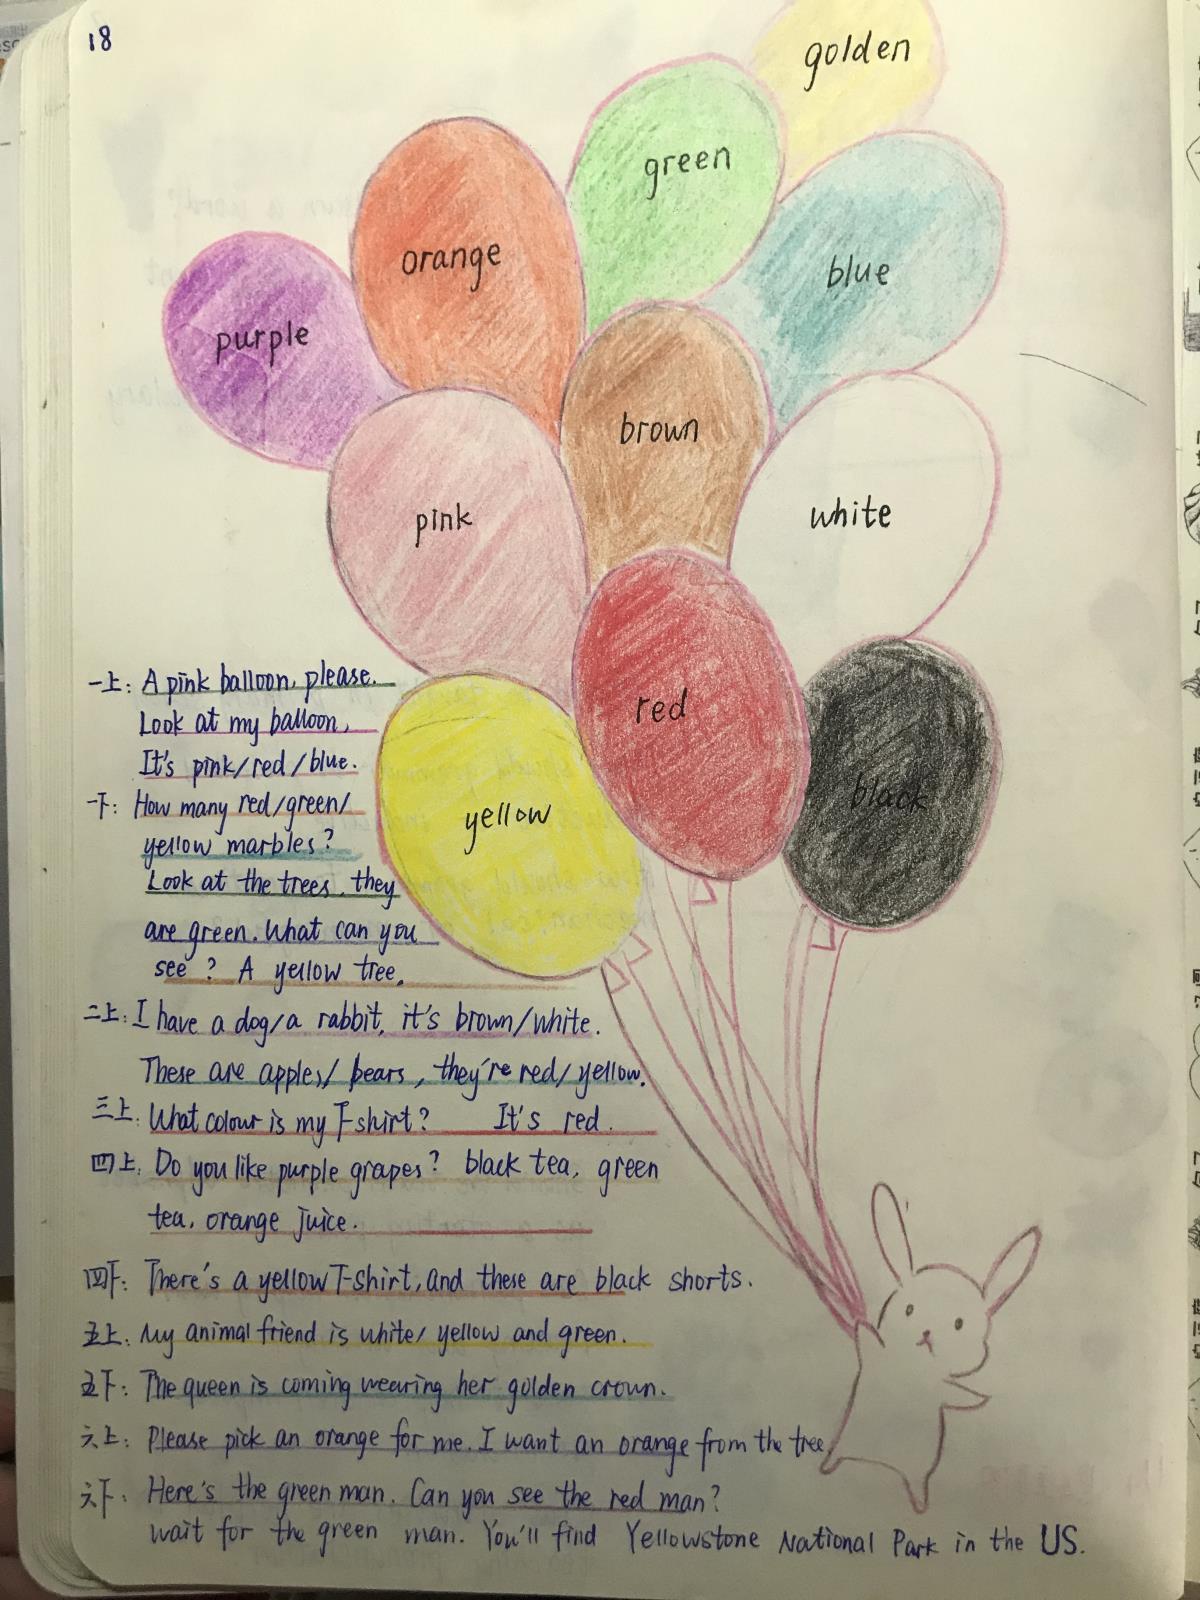 18
golden
green
orange
blue
purple
brown
pink
white
red
yellow
black
一上: A pink balloon, please.
Look at my balloon,
It's pink/red/blue.
一下: How many red/green/
yellow marbles?
Look at the trees, they
are green. What can you
see? A yellow tree.
二上: I have a dog/a rabbit, it's brown/white.
These are apples/pears, they're red/yellow.
三上: What colour is my T-shirt? It's red.
四上: Do you like purple grapes? black tea, green
tea, orange juice.
四下: There's a yellow T-shirt, and these are black shorts.
五上: My animal friend is white/yellow and green.
五下: The queen is coming wearing her golden crown.
六上: Please pick an orange for me. I want an orange from the tree.
六下: Here's the green man. Can you see the red man?
wait for the green man. You'll find Yellowstone National Park in the US.